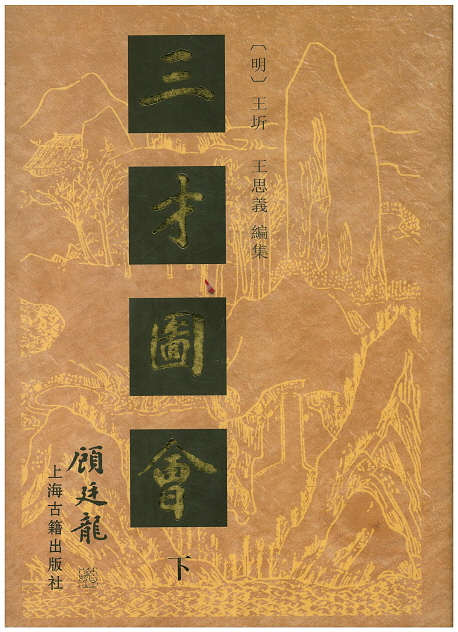 〔明〕王圻 王思義 編集
三才圖會
下
顧廷龍
上海古籍出版社